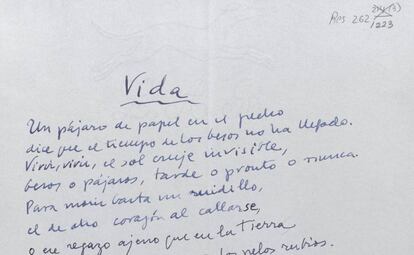 Res 262
/223
Vida
Un pájaro de papel en el pecho
dice que el tiempo de los besos no ha llegado.
Vivir, vivir, el sol cruje invisible,
besos o pájaros, tarde o pronto o nunca.
Para morir basta un ruidillo,
el de otro corazón al callarse,
o ese regazo ajeno que en la tierra
los pelos rubios.